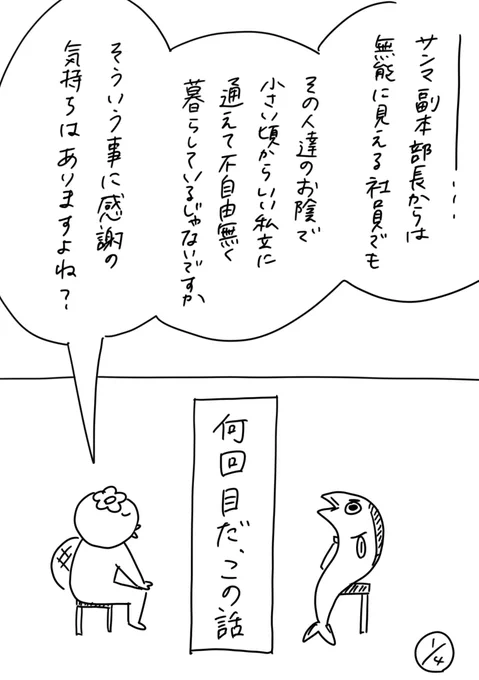 ――――…
サンマ副本部長からは
無能に見える社員でも
その人達のお陰で
小さい頃からいい私立に
通えて不自由無く
暮らしているじゃないですか
そういう事に感謝の
気持ちはありますよね？
何回目だ、この話
1/4